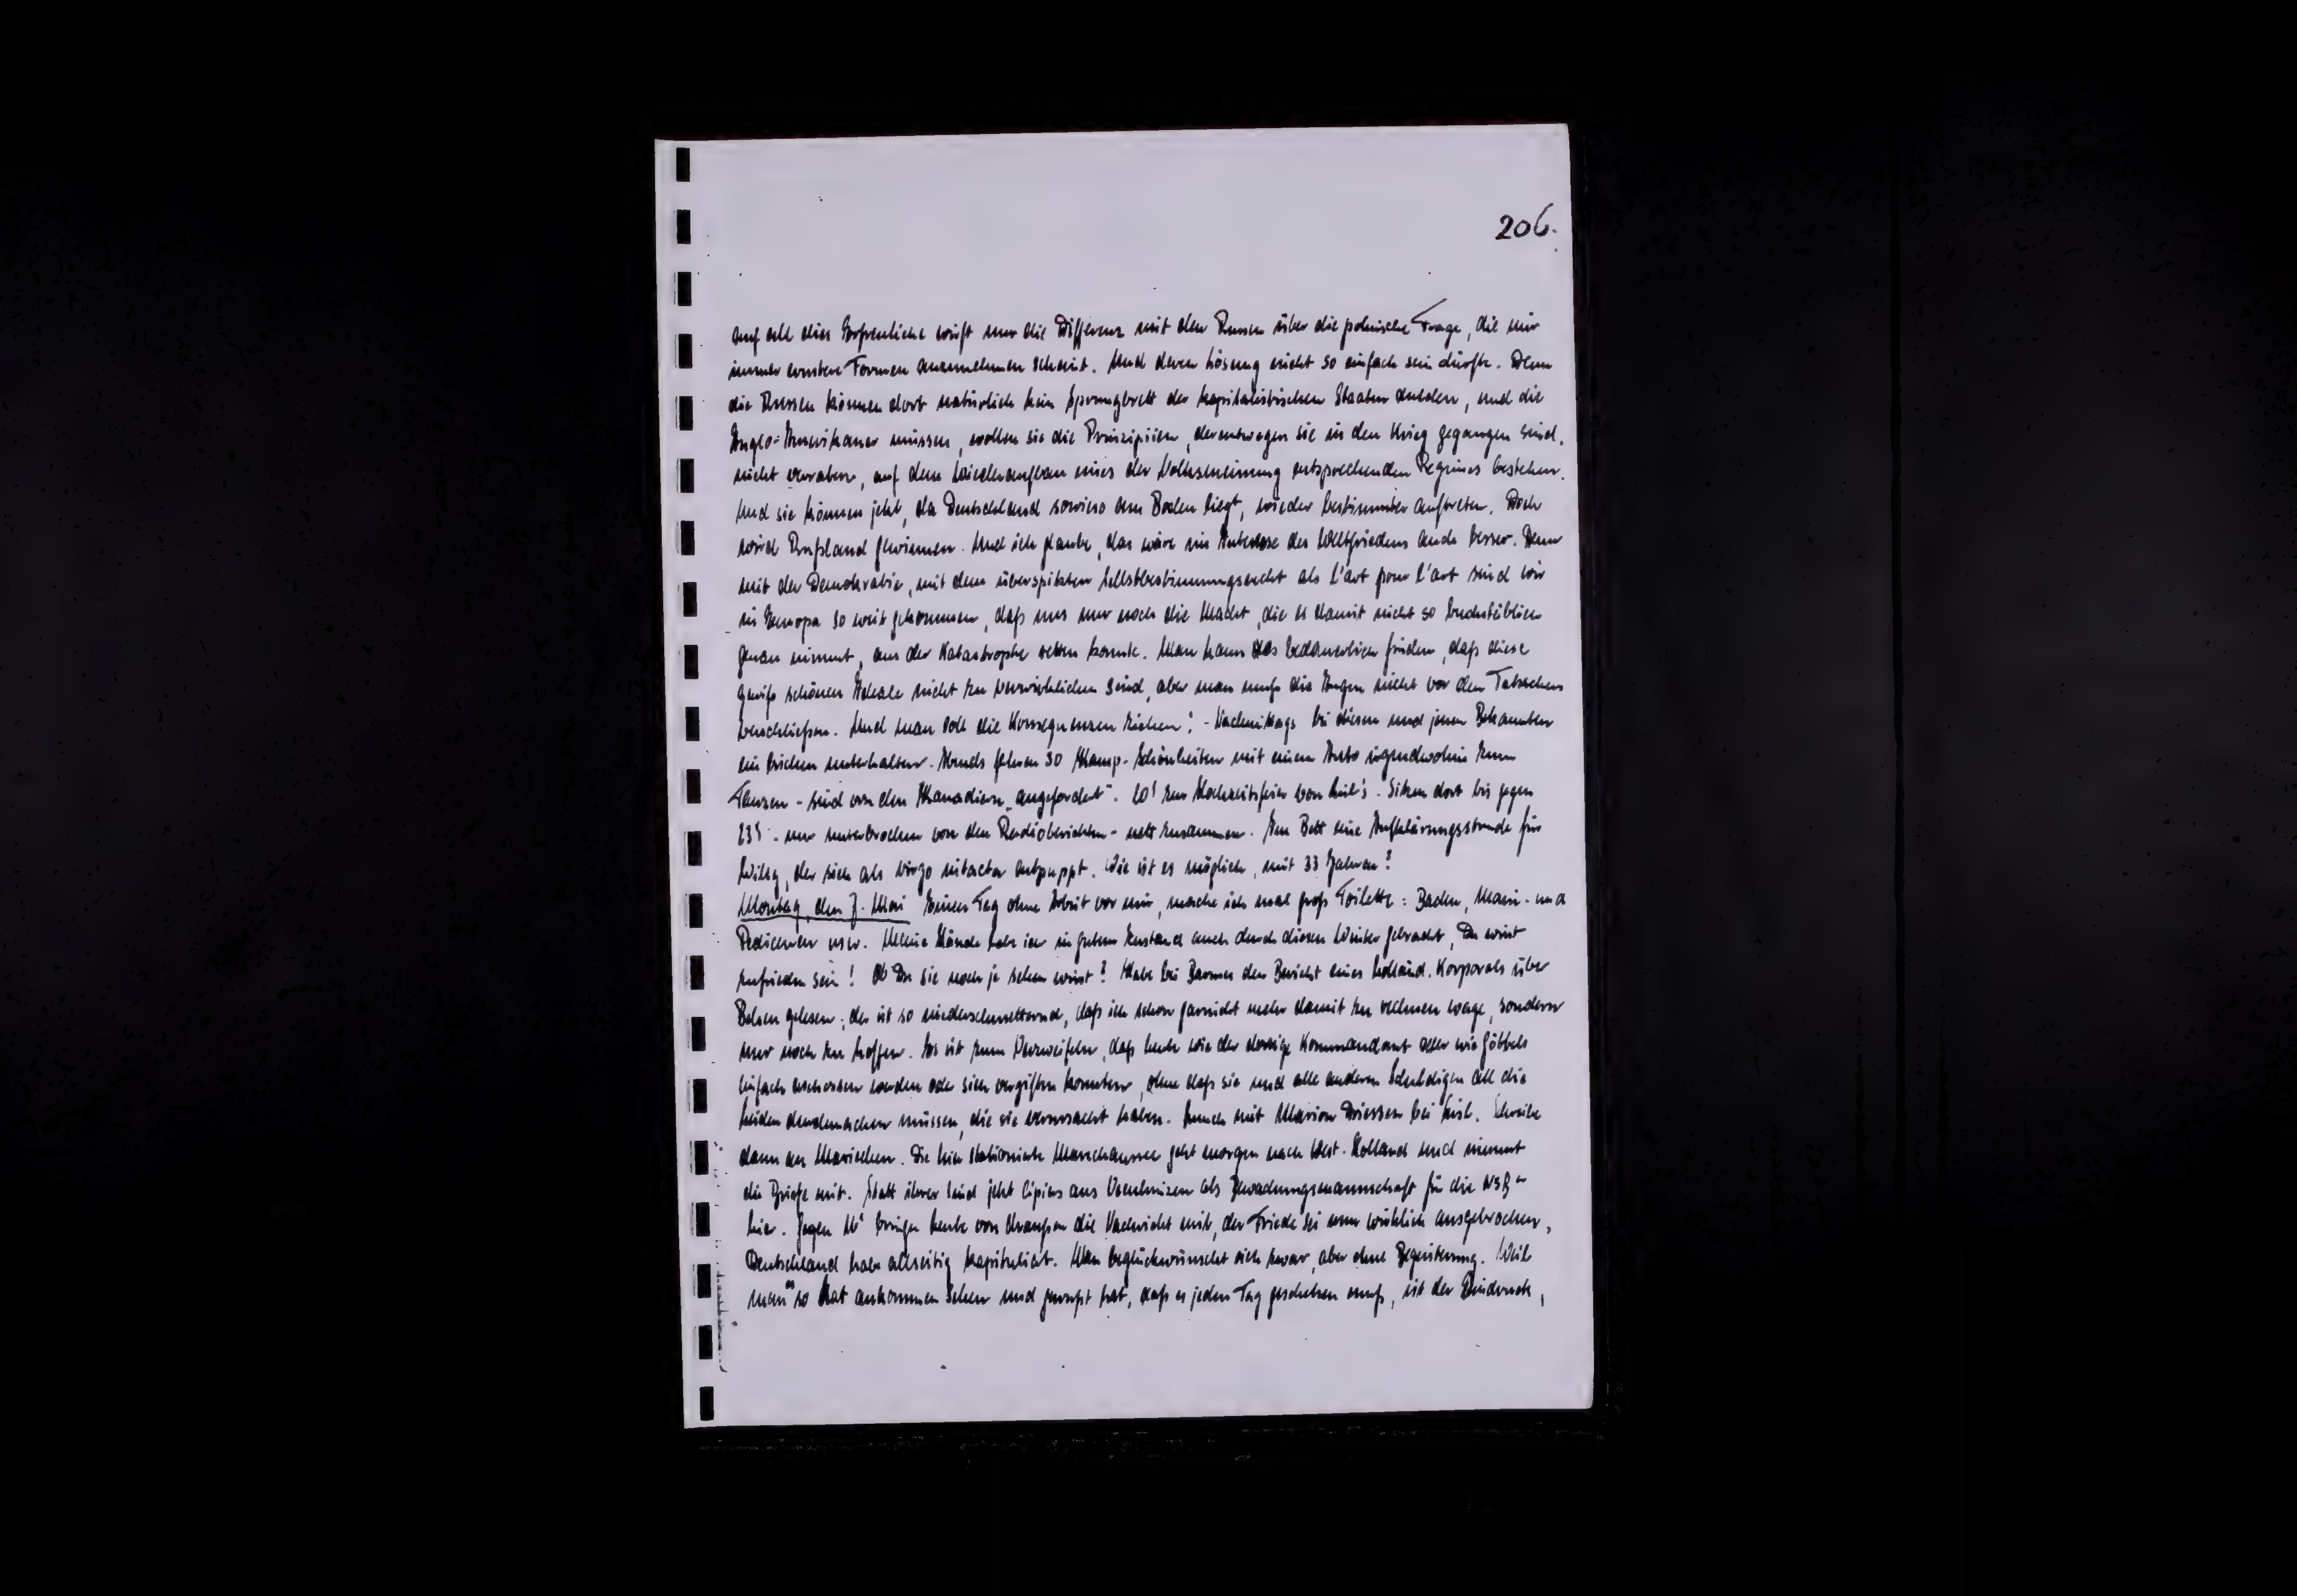 206.
auf all dies Erfreuliche wirft nur die Differenz mit den Russen über die polnische Frage, die mir
immer ernstere Formen anzunehmen scheint. Und deren Lösung nicht so einfach sein dürfte. Denn
die Russen können dort natürlich kein Sprungbrett der kapitalistischen Staaten dulden, und die
Anglo-Amerikaner müssen, wollen sie die Prinzipien, derentwegen sie in den Krieg gegangen sind,
nicht verraten, auf dem Wiederaufbau eines der Volksmeinung entsprechenden Regimes bestehen.
Und sie können jetzt, da Deutschland sowieso am Boden liegt, wieder bestimmter auftreten. Doch
wird Rußland gewinnen. Und ich glaube, das wäre im Interesse des Weltfriedens auch besser. Denn
mit der Demokratie, mit dem überspitzten Selbstbestimmungsrecht als l'art pour l'art sind wir
in Europa so weit gekommen, daß uns nur noch die Macht, die es damit nicht so buchstäblich
genau nimmt, aus der Katastrophe retten konnte. Man kann das bedauerlich finden, daß diese
gewiß schönen Ideale nicht zu verwirklichen sind, aber man muß die Augen nicht vor den Tatsachen
verschließen. Und man soll die Konsequenzen ziehen! - Nachmittags bei diesen und jenen Bekannten
ein bischen unterhalten. Abends fahren 30 Kamp-Schönheiten mit einem Auto irgendwohin zum
Tanzen - sind von den Kanadiern „angefordert". 20' zur Hochzeitsfeier von . Sitzen dort bis gegen
23' - nur unterbrochen von den Radioberichten - nett zusammen. Im Bett eine Aufklärungsstunde für
Willy, der sich als virgo intacta entpuppt. Wie ist es möglich, mit 33 Jahren?
Montag, den 7. Mai Einen Tag ohne Arbeit vor mir, mache ich mal groß Toilette: Baden, Mani- und
Pedicuren usw. Meine Hände habe ich in gutem Zustand auch durch diesen Winter gebracht, Du wirst
zufrieden sein! Ob Du sie noch je sehen wirst? Habe bei den Bericht eines holländ. Korporals über
Belsen gelesen; der ist so niederschmetternd, daß ich schon garnicht mehr damit zu rechnen wage, sondern
nur noch zu hoffen. Es ist zum Verzweifeln, daß Leute wie der dortige Kommandant oder wie Göbbels
einfach erschossen werden oder sich vergiften konnten, ohne daß sie und alle anderen Schuldigen all die
Leiden durchmachen müssen, die sie verursacht haben. Lunch mit Marion Driessen bei . Schreibe
dann an Mariechen. Die hier stationierte Marechaussee geht morgen nach West-Holland und nimmt
die Briefe mit. Statt ihrer sind jetzt aus als Bewachungsmannschaft für die NSB-er
hier. Gegen bringen Leute von draußen die Nachricht mit, der Friede sei nun wirklich ausgebrochen,
Deutschland habe allseitig kapituliert. Man beglückwünscht sich zwar, aber ohne Begeisterung. Weil
man es so hat ankommen sehen und gewußt hat, daß es jeden Tag geschehen muß, ist der Eindruck,